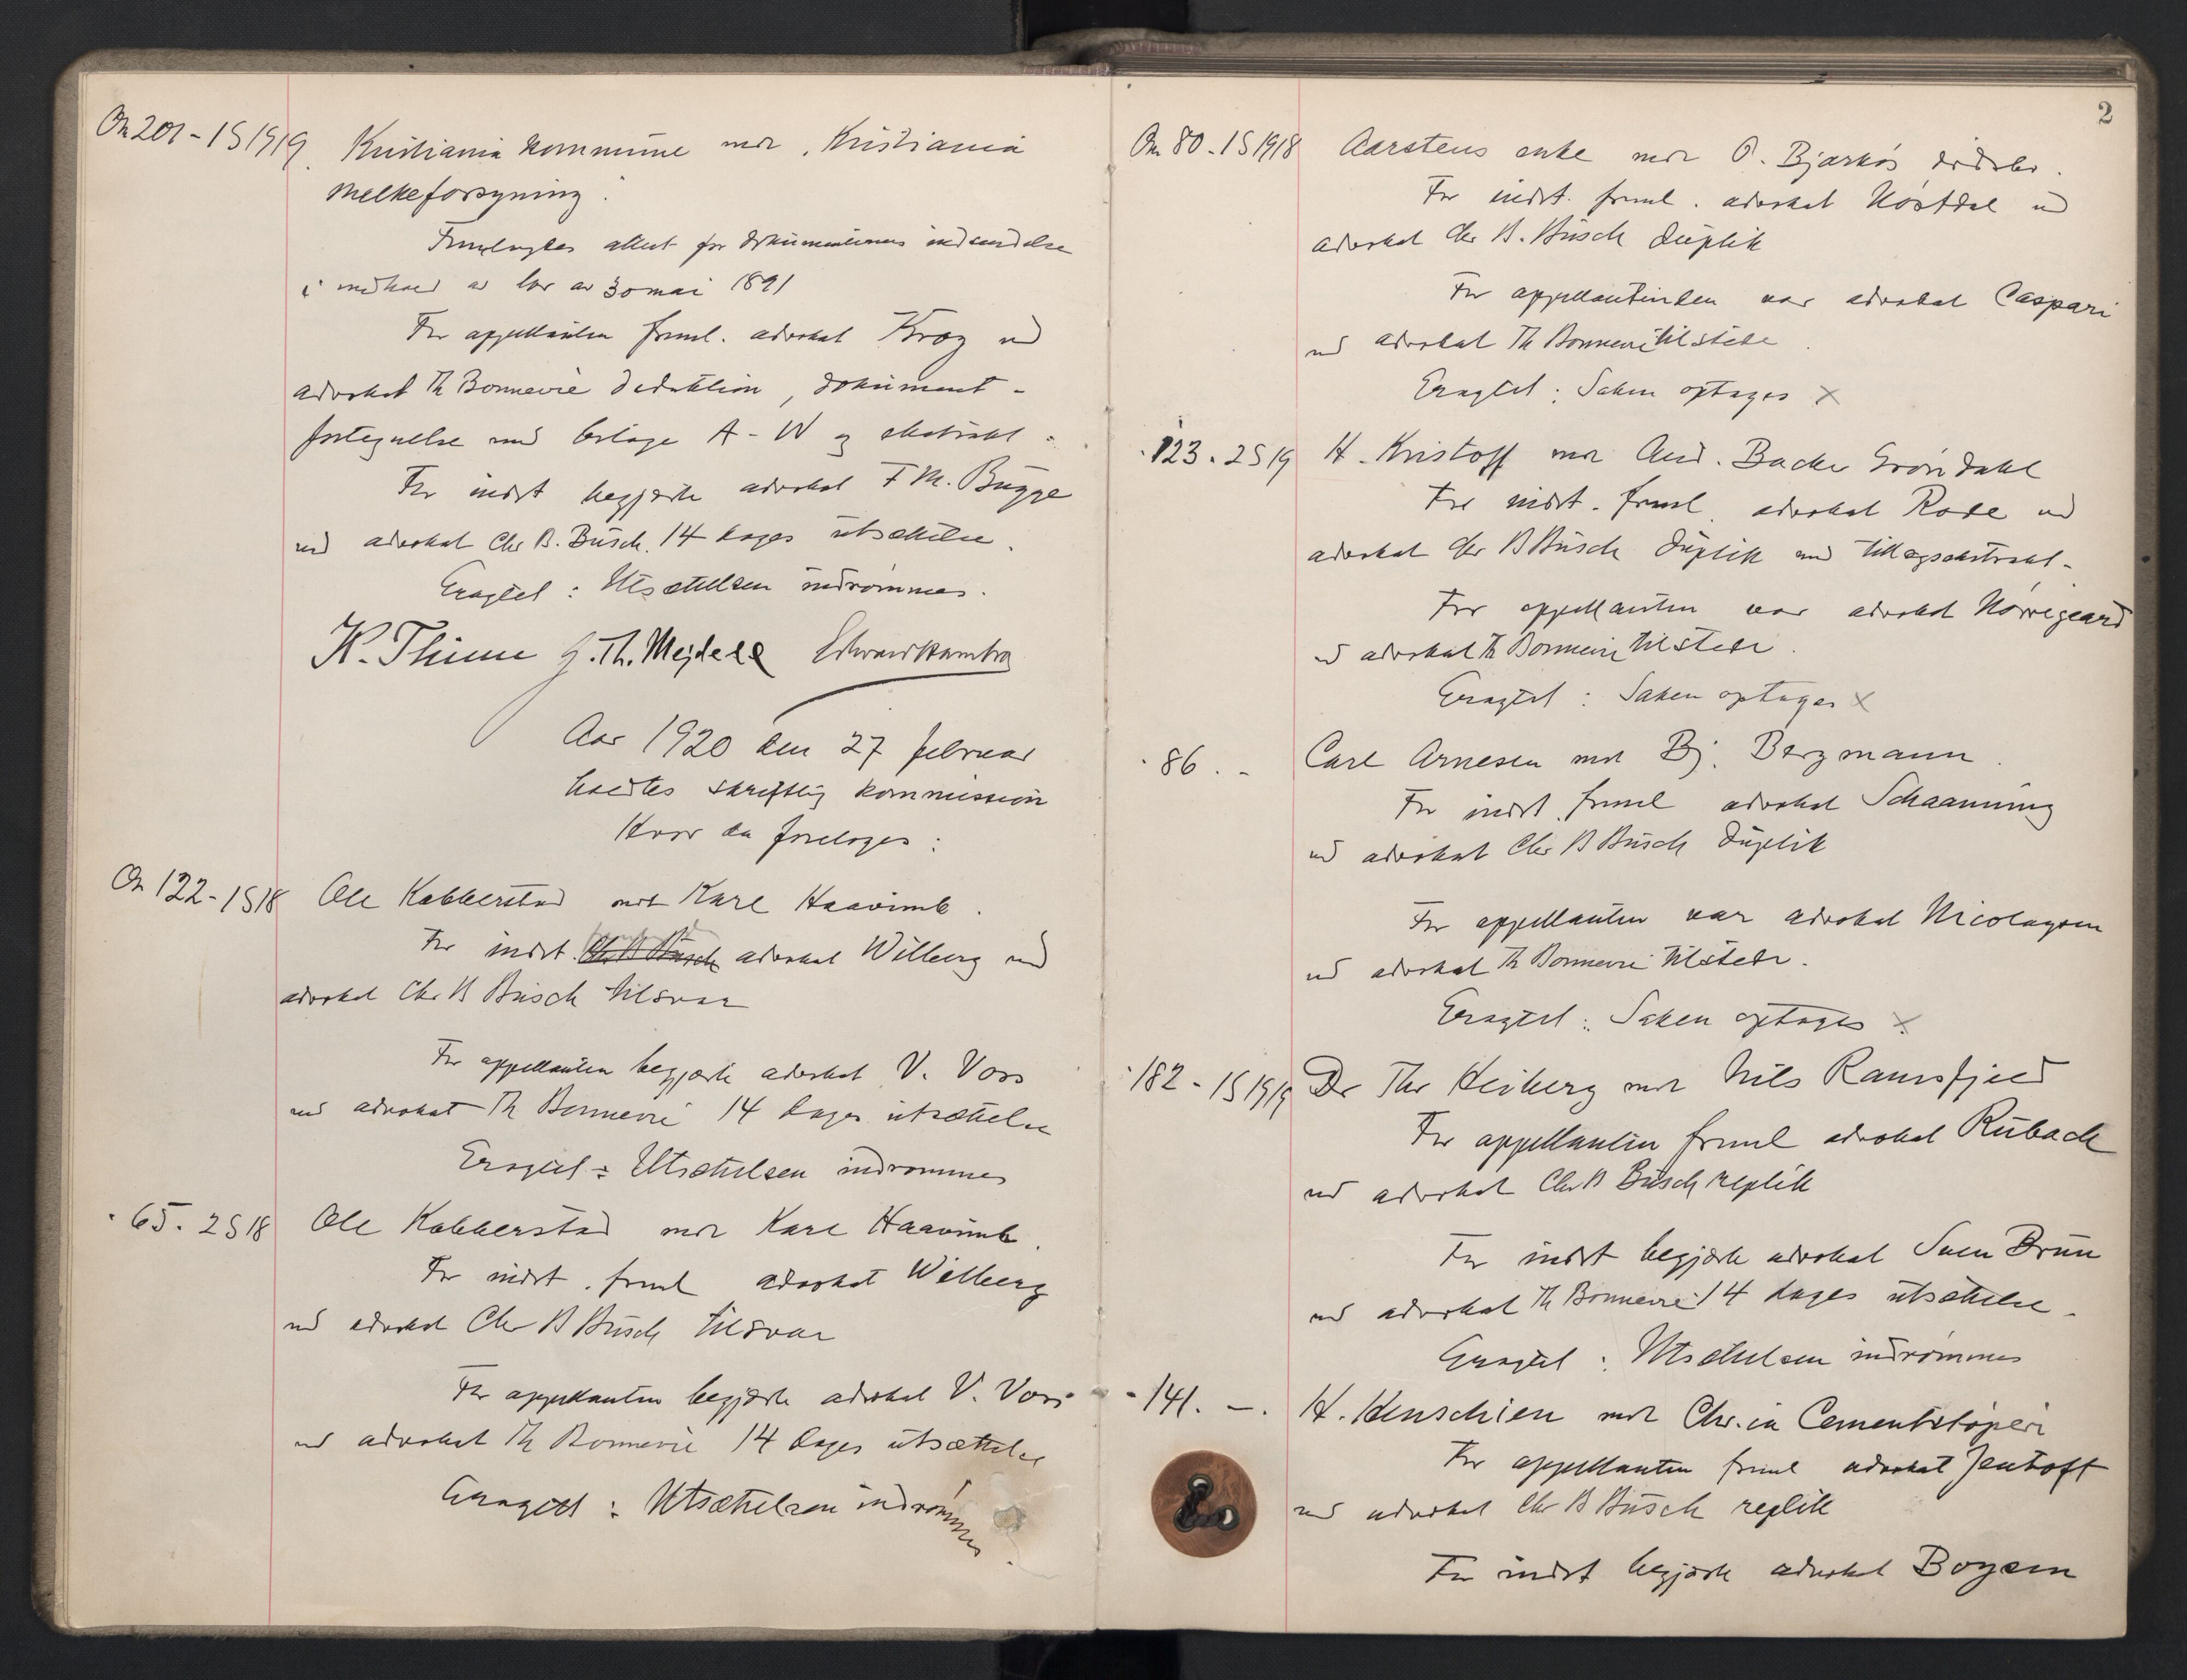 On 201-1S1919 Kristiania kommune mot "Kristiania
Melkeforsyning".
Fremlagdes attest for dokumenternes indsendelse
i medhold av lov av 30 mai 1891
For appellanten freml. advokat Krog ved
advokat Th Bonnevie deduktion, dokument-
fortegnelse med bilage A-W og ekstrakt.
For indst begjærte advokat F M. Bugge
ved advokat Chr B. Busch. 14 dages utsættelse.
Eragtet: Utsættelsen indrømmes.
K. Thime J. Th. Mejdell Edvard Hambro
Aar 1920 den 27 februar
holdtes skriftlig kommission
hvor da foretoges:
On 122-1S18 Ole Kabberstad mot Karl Haavimb.
For indst. Chr B Busch advokat Willberg ved
advokat Chr B Busch tilsvar
For appellanten begjærte advokat V. Voss
ved advokat Th Bonnevie 14 dages utsættelse
Eragtet: Utsættelsen indrømmes
" 65. 2S18 Ole Kabberstad mot Karl Haavimb.
For indst. freml advokat Willberg
ved advokat Chr B Busch tilsvar
For appellanten begjærte advokat V. Voss
ved advokat Th Bonnevie 14 dages utsættelse
Eragtet: Utsættelsen indrømmes.
2
On 80-1S1918 Aarstens enke mot O. Bjarkøs dødsbo.
For indst. freml. advokat Høstdal ved
advokat Chr B. Busch duplik
For appellantinden var advokat Caspari
ved advokat Th Bonnevie tilstede.
Eragtet: Saken optages x
" 123. 2S19 H. Kristoff mot And. Backer Grøndahl
For indst. freml. advokat Rode ved
advokat Chr B Busch duplik med tillægsekstrakt.
For appellanten var advokat Nørregaard
ved advokat Th Bonnevie tilstede.
Eragtet: Saken optages x
" 86. - Carl Arnesen mot Bj. Bergmann.
For indst. freml advokat Schaanning
ved advokat Chr B Busch duplik
For appellanten var advokat Nicolaysen
ved advokat Th Bonnevie tilstede.
Eragtet: Saken optages x
" 182-1S1919 Dr Thr Heiberg mot Nils Ramsfjeld
For appellanten freml advokat Rubach
ved advokat Chr B Busch replik
For indst begjærte advokat Sven Brun
ved advokat Th Bonnevie 14 dages utsættelse.
Eragtet: Utsættelsen indrømmes
" 141. -. H. Henschien mot Chr.ia Cementstøperi
For appellanten freml advokat Jentoft
ved advokat Chr B Busch replik
For indst begjærte advokat Boysen